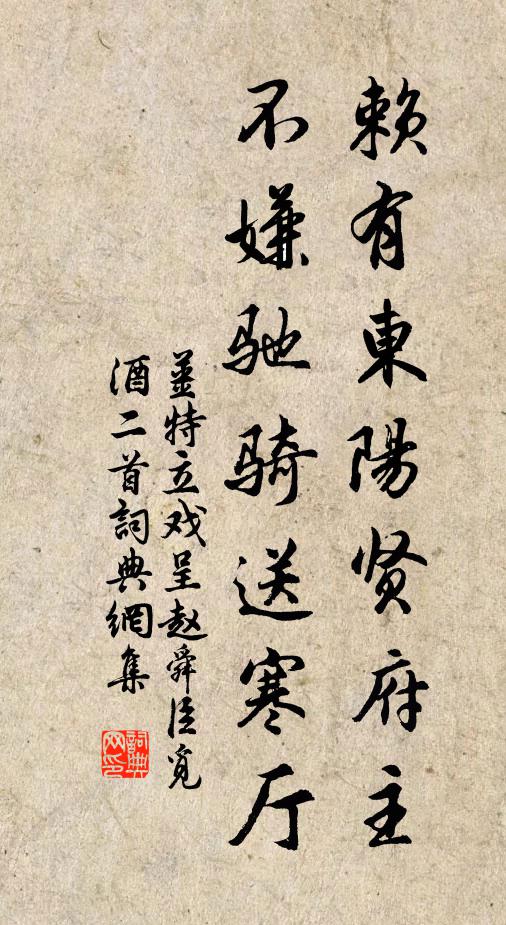 赖有東陽贤府主
不嫌驰骑送寒厅
姜特立戏呈赵舜臣觅
酒二首詞典網集
詞典
网印